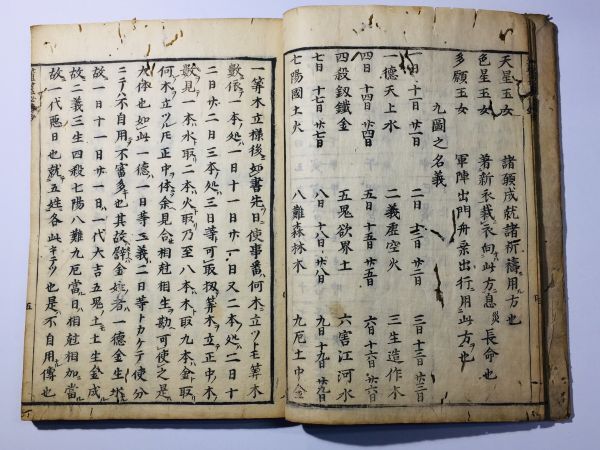 天星玉女 諸願成就諸祈禱用方也
色星玉女 著新衣裁衣向此方息災長命也
多願玉女 軍陣出門舟乗出行用此方也
九圖之名義
一日 十一日 廿一日 二日 十二日 廿二日 三日 十三日 廿三日
一德天上水 二義虚空火 三生造作木
四日 十四日 廿四日 五日 十五日 廿五日 六日 十六日 廿六日
四殺釼鐵金 五鬼欲界土 六害江河水
七日 十七日 廿七日 八日 十八日 廿八日 九日 十九日 廿九日
七陽國土火 八難森林木 九厄土中金
一筭木立様後如書先日使事番何木立ツトモ筭木
數依一本処一日十一日廿一日又二本処二日十
二日廿二日三本処三日等可取扱筭木立正中木
數見一本水取二本火取乃至八本木取九本金取
何木立ツトモ正中体余見合相尅相生勘可使之是
大体也如此一德一日等二義二日等トカケテ使分
ニテハ不自用不審多也其故譬金姓者一德金生水
故一日十一日廿一日一代大吉五鬼土土生金成
故二義三生四殺七陽八難九厄當日相尅相加當
故一代悪日也就五姓各此キテツ也是不自用傳也
五